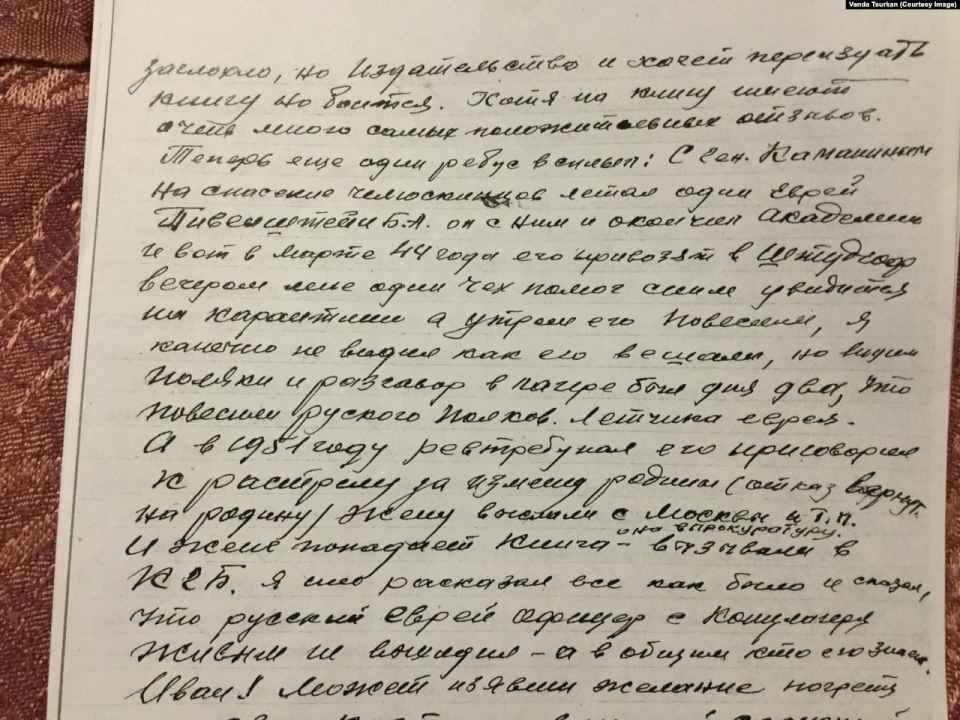 Vanda Tsurkan (Courtesy Image)
заглохло, но Издательство и хочет переиздать
книгу но боится. Хотя на книгу имеют
очень много самых положительных отзывов.
Теперь еще один ребус всплыл: С Ген. Каманиным
на спасение челюскинцов летал один Еврей
Пивенштейн Б.А. он с ним и окончил Академию
И вот в марте 44 года его привозят в Штутгоф
вечером мне один Чех помог с ним увидится
на карантине а утром его повесили, я
конечно не видил как его вешали, но видили
Поляки и разговор в лагере был дня два, что
повесили русского Полков. Летчика еврея.
А в 1951 году ревтребунал его приговорил
К растрелу за измену родины (отказ вернут.
на родину) Жену выслали с Москвы и т.п.
она в прокуратуру.
И жене попадает Книга - вызывали в
КГБ. я им расказал все как было и сказал,
что русский Еврей офицер с Концлагеря
живым не выходил - а в общим кто его знает.
Иван! Может изявиш желание